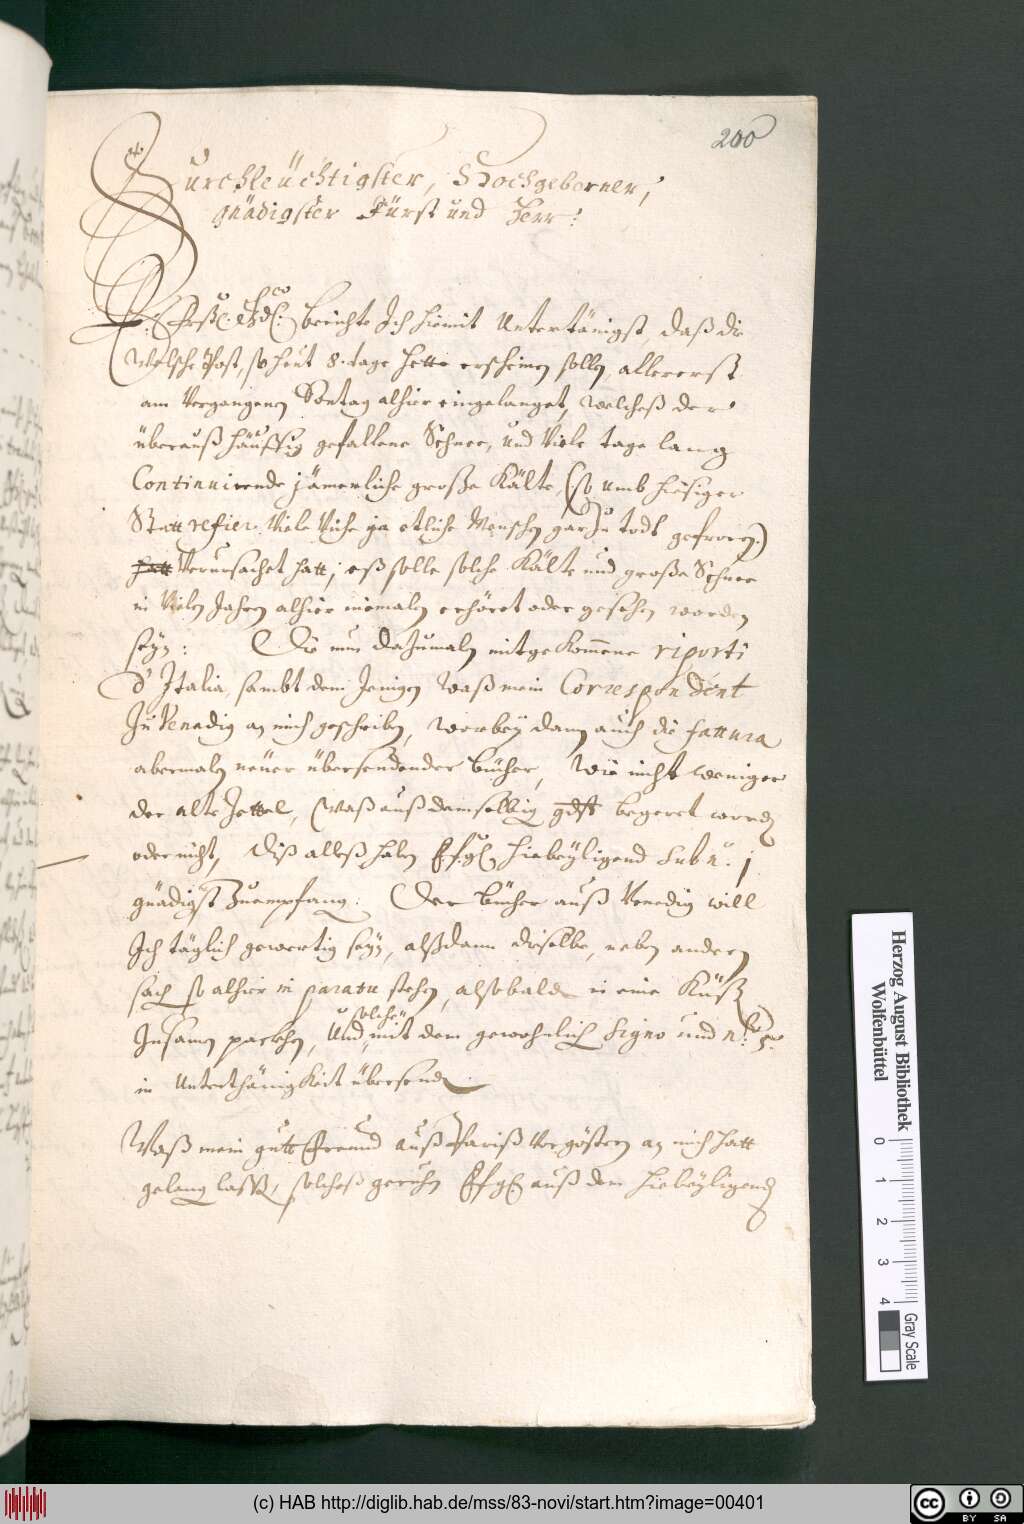 200
Durchleüchtigster, Hochgeborner,
gnädigster Fürst und Herr:
E: Frstl: Gd: berichte Ich hiemit Untertänigst, daß die
Welsche Post, so heut 8. tage hette erscheinen sollen, allererst
am Vergangenen Sontag alhier eingelanget, welcheß der
überauß häuffig gefallene Schnee, und Viele tage lang
Continuirende jämerliche große Kälte, (so umb hiesiger
Statt refier Viele Viehe ja etliche Menschen gar zu todt gefroren.)
hatt Verursachet hatt; eß solle solche Kälte und große Schnee
in Vielen Jahren alhier niemalen erhöret oder gesehen worden
seyn: Die nun dazumalen mitgekommene riporti
d'Italia, sambt dem Jenigen waß mein Correspondent
Zu Venedig an mich geschrieben, worbey dann auch die fattura
abermalen neüer übersendender Bücher, wie nicht weniger
der alte Zettel, (waß auß demselbig gdst begeret word
oder nicht, diß alleß haben E. f. g. hiebeyligend sub n. 1
gnädigst Zuempfang. Der Bücher auß Venedig will
Ich täglich gewertig seyn, alßdann dieselbe, neben andern
sach so alhier in paratu stehen, alsobald in eine Küst
Zusamen packhen, Und solche mit dem gewohnlich Signo und n: 5.
in Unterthänigkeit übersend.
Waß mein gutt Freund auß Pariß Vorgöstern an mich hatt
gelang lassen, solcheß geruhen E. f. g. auß dem hiebeyligend
Herzog August Bibliothek
Wolfenbüttel
0 1 2 3 4
Gray Scale
(c) HAB http://diglib.hab.de/mss/83-novi/start.htm?image=00401
cc BY SA